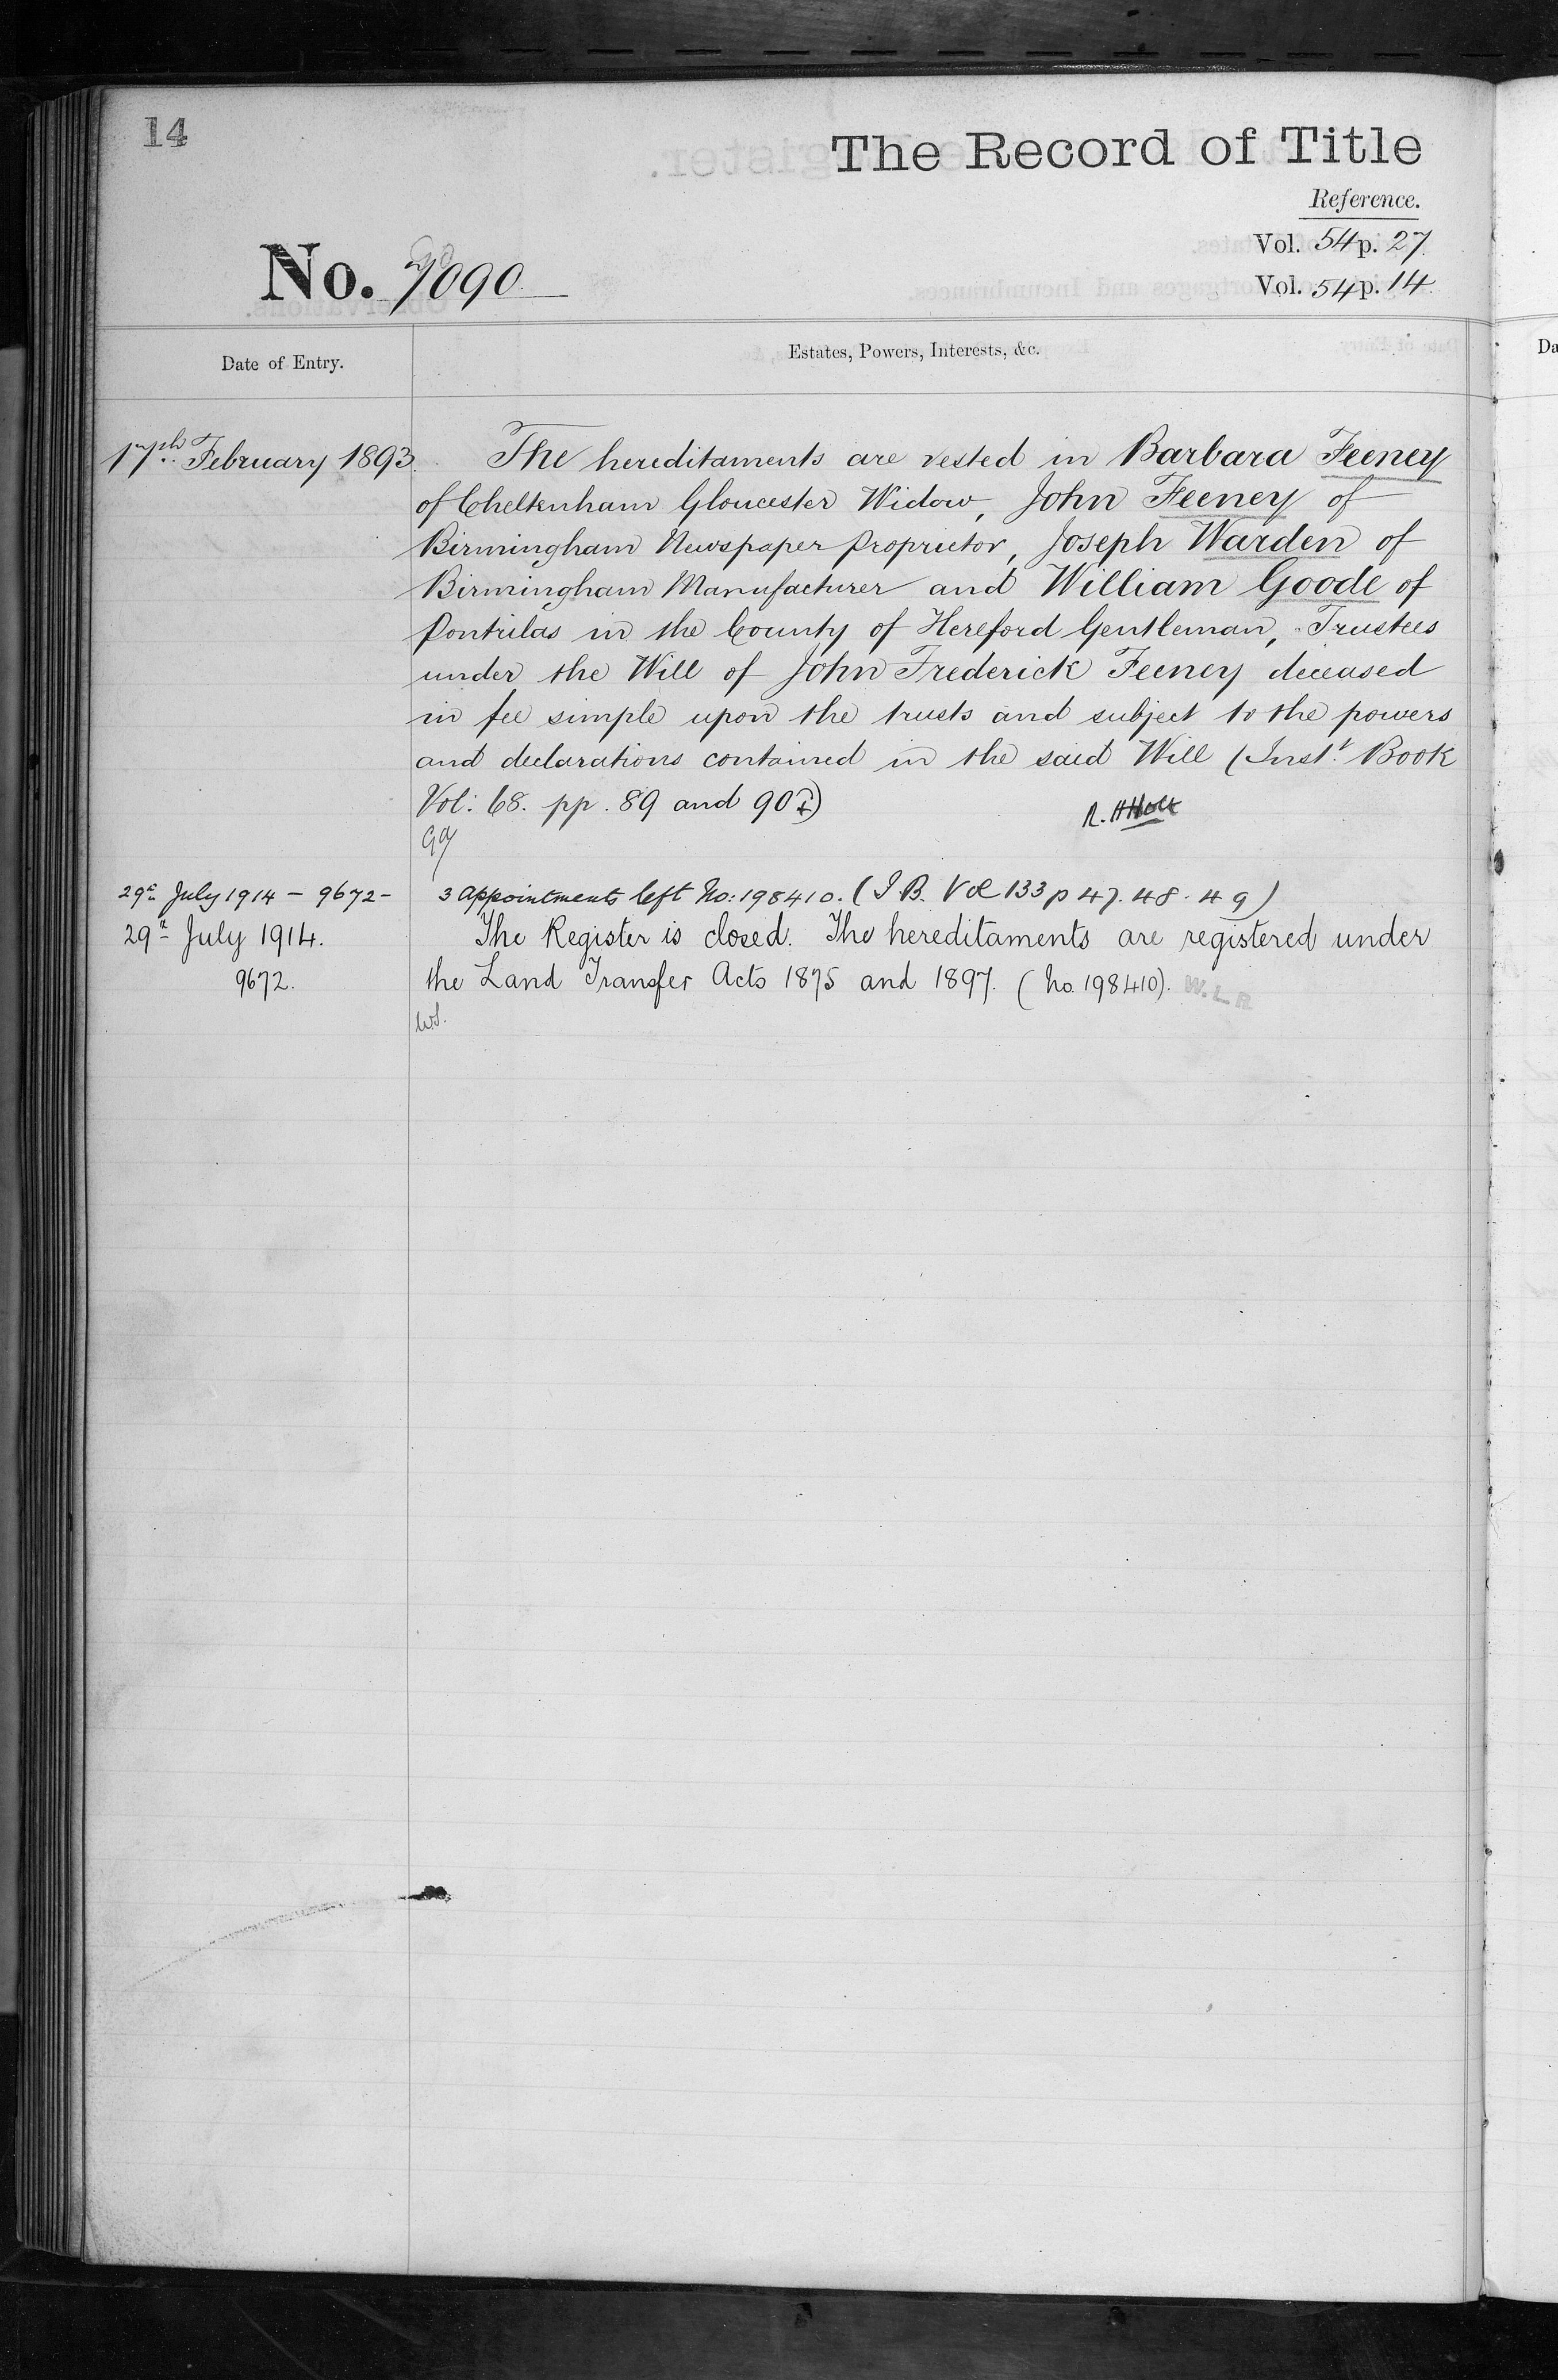 14
The Record of Title
Reference.
Vol. 54 p. 27.
No. 7090
Vol. 54 p. 14
Date of Entry.
Estates, Powers, Interests, &c.
17th February 1893.
The hereditaments are vested in Barbara Feeney
of Cheltenham Gloucester Widow, John Feeney of
Birmingham Newspaper Proprietor, Joseph Warden of
Birmingham Manufacturer and William Goode of
Pontrilas in the County of Hereford Gentleman, Trustees
under the Will of John Frederick Feeney deceased
in fee simple upon the trusts and subject to the powers
and declarations contained in the said Will (Inst. Book
Vol: 68. pp. 89 and 90
R. H Holt
29th July 1914 - 9672 -
3 appointments left No: 198410. (I.B. Vol 133 p 47. 48. 49)
29th July 1914.
9672.
The Register is closed. The hereditaments are registered under
the Land Transfer Acts 1875 and 1897. (No. 198410). W. L. R.
W.S.
Da